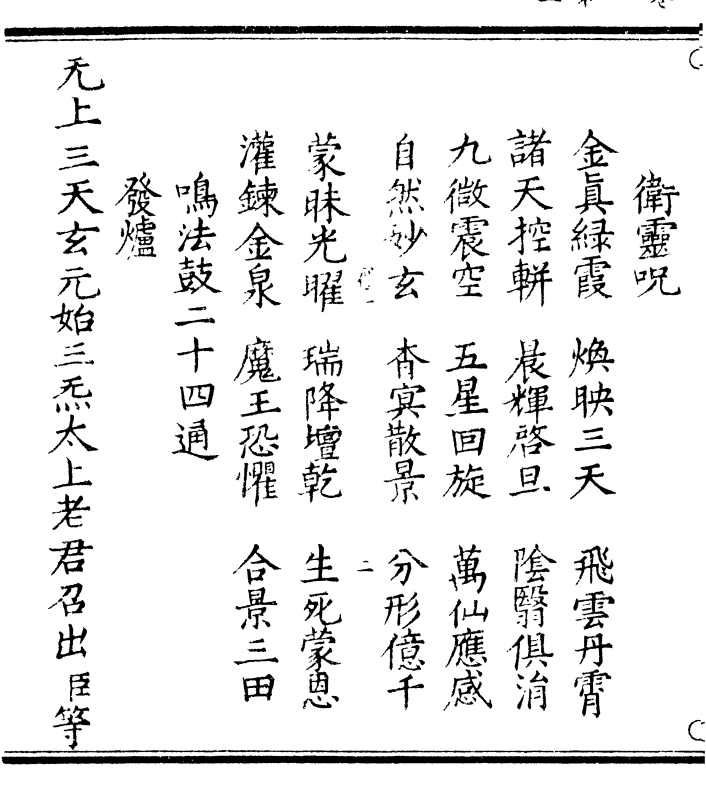 衛靈呪
金眞緑霞　煥映三天　飛雲丹霄
諸天控軿　晨輝啓旦　陰翳俱消
九微震空　五星回旋　萬仙應感
自然妙玄　杳冥散景　分形億千
二
蒙昧光曜　瑞降壇乾　生死蒙恩
灌鍊金泉　魔王恐懼　合景三田
鳴法鼓二十四通
發爐
无上三天玄元始三炁太上老君召出臣等